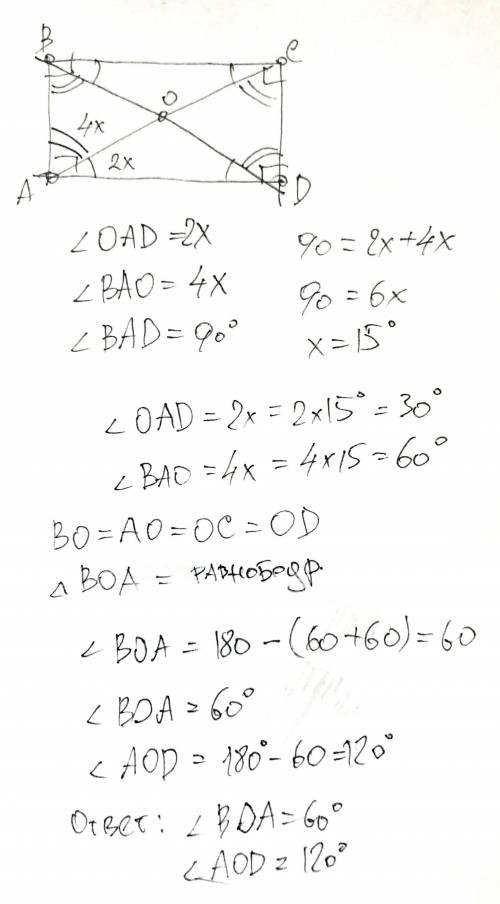 B C
O
4x
2x
A D
∠OAD = 2x 90 = 2x+4x
∠BAO = 4x 90 = 6x
∠BAD = 90° x = 15°
∠OAD = 2x = 2x15° = 30°
∠BAO = 4x = 4x15 = 60°
BO = AO = OC = OD
△ BOA = равнобедр.
∠BOA = 180 - (60+60) = 60
∠BOA = 60°
∠AOD = 180° - 60 = 120°
Ответ: ∠BOA = 60°
∠AOD = 120°